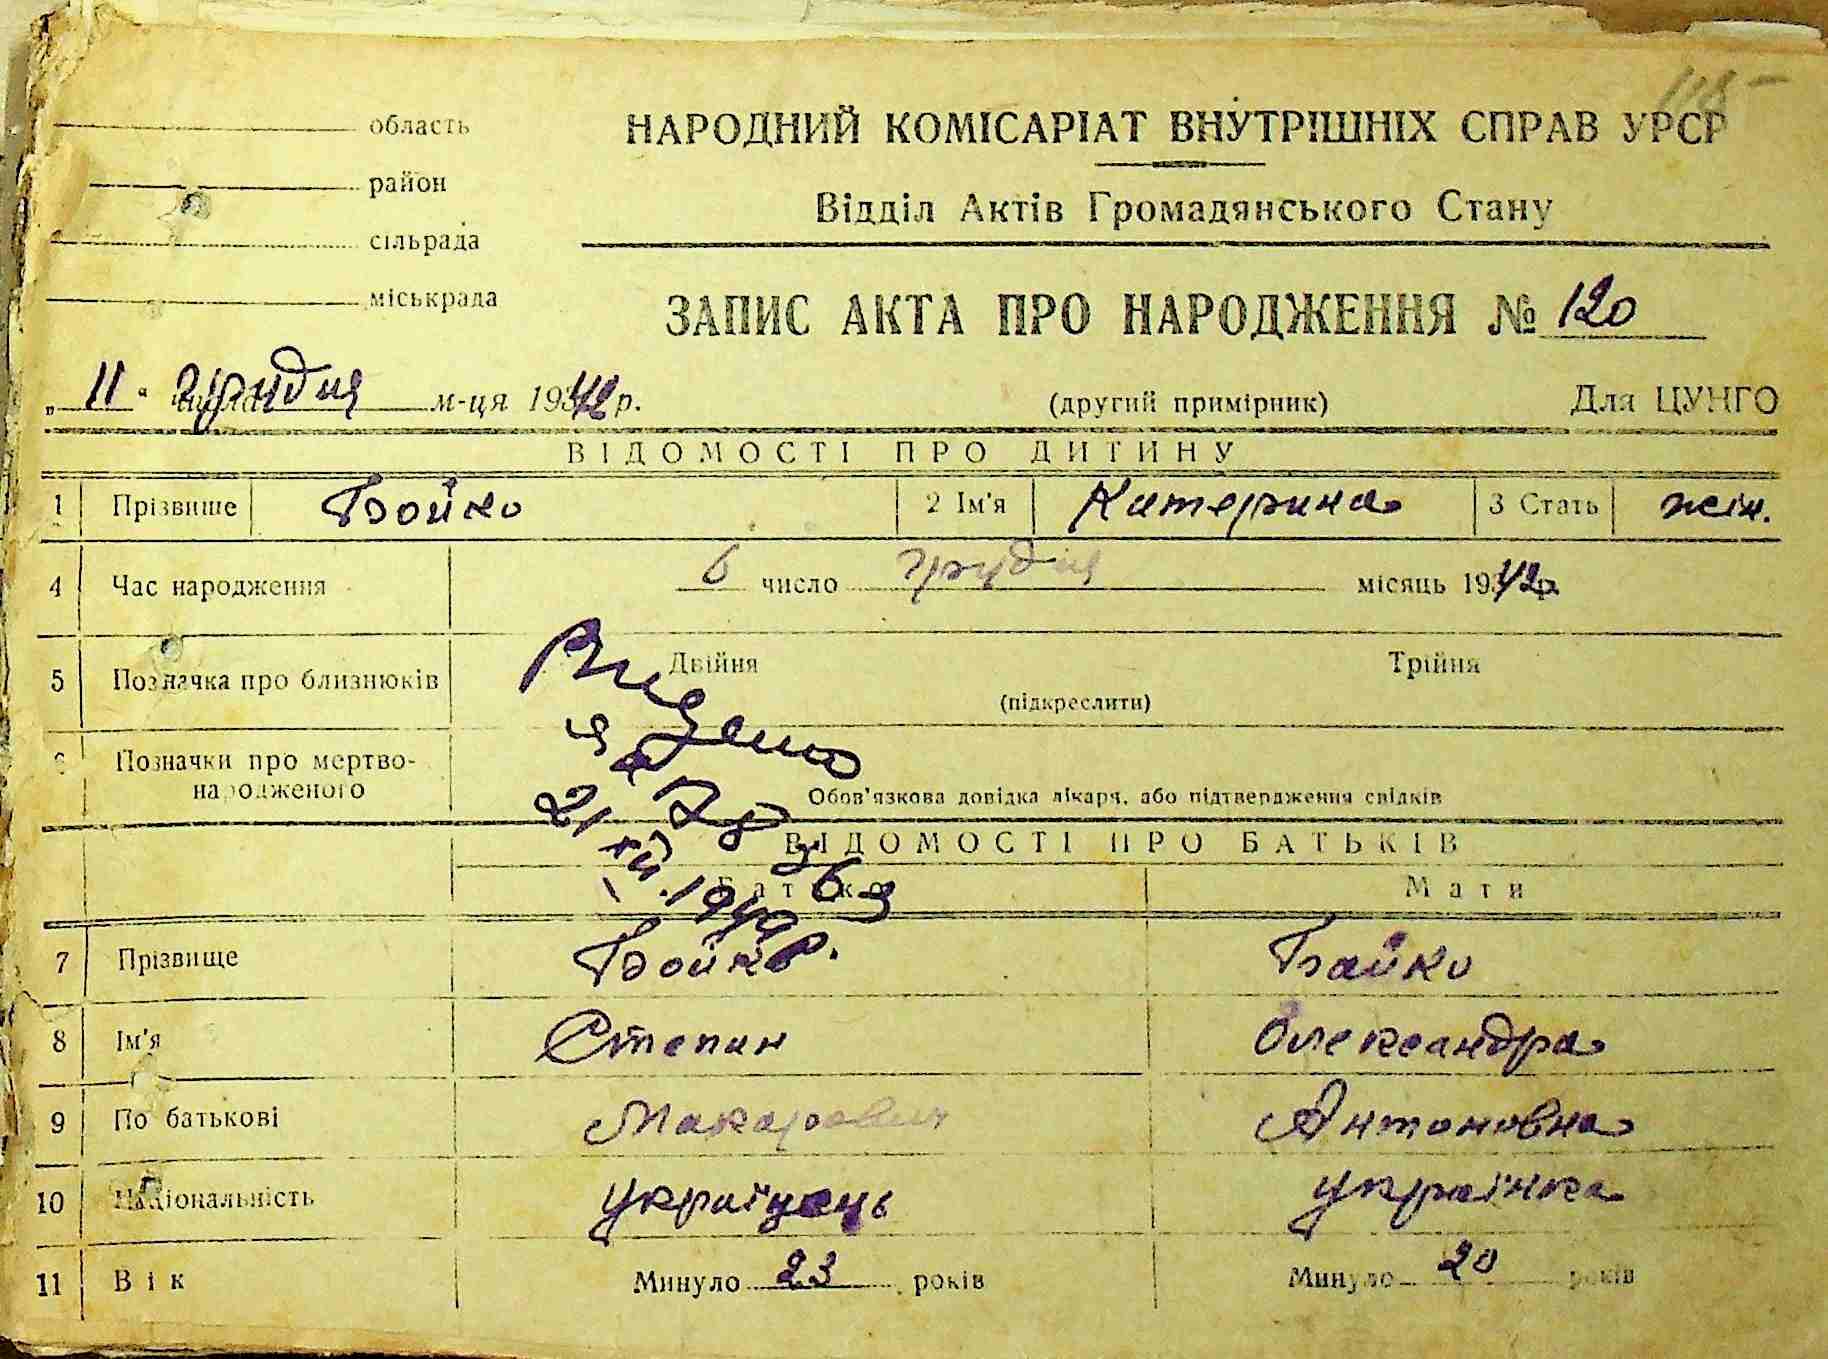 115
область
район
сільрада
міськрада
НАРОДНИЙ КОМІСАРІАТ ВНУТРІШНІХ СПРАВ УРСР
Відділ Актів Громадянського Стану
ЗАПИС АКТА ПРО НАРОДЖЕННЯ № 120
„11“ грудня м-ця 1942 р. (другий примірник) Для ЦУНГО
ВІДОМОСТІ ПРО ДИТИНУ
1 Прізвище Бойко 2 Ім'я Катерина 3 Стать жін.
4 Час народження 6 число грудня місяць 1942р
5 Позначка про близнюків Двійня Трійня
(підкреслити)
6 Позначки про мертво-
народженого Обов'язкова довідка лікаря, або підтвердження свідків
21 XII. 1949 р.
ВІДОМОСТІ ПРО БАТЬКІВ
Батько Мати
7 Прізвище Бойко Бойко
8 Ім'я Степан Олександра
9 По батькові Макарович Антоновна
10 Національність українець українка
11 Вік Минуло 23 років Минуло 20 років